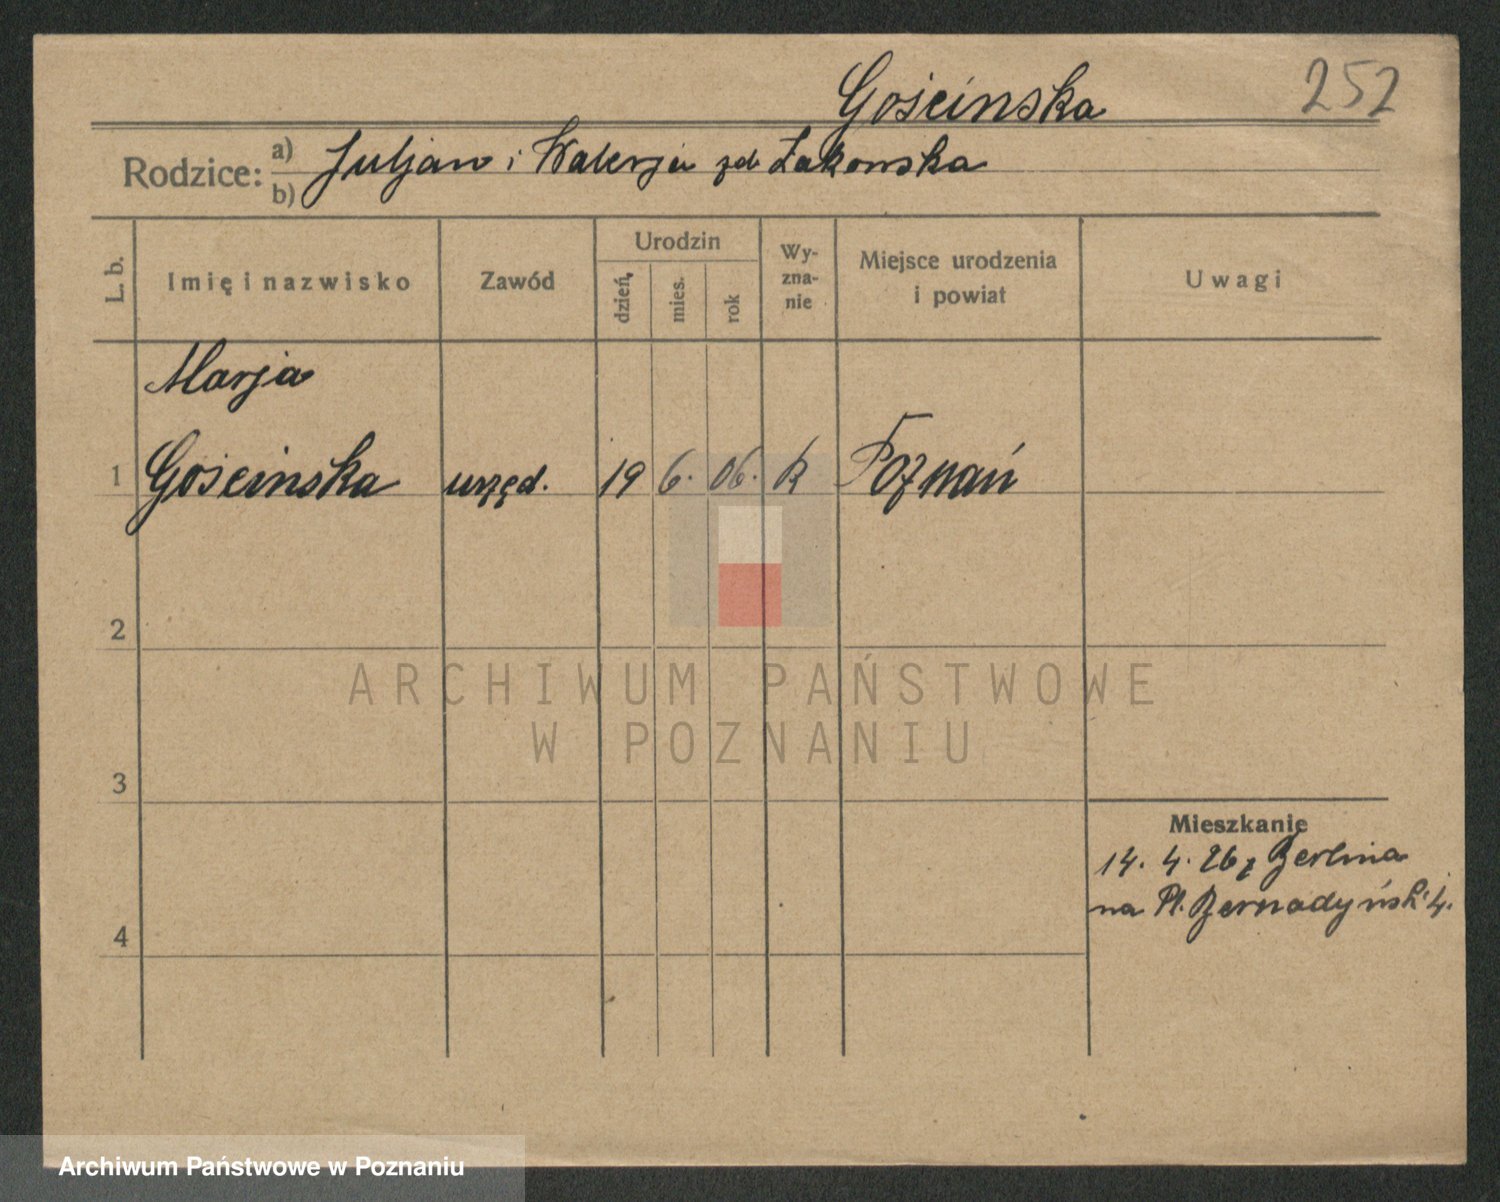 Gościnska 252
Rodzice: a) Juljan i Walerja zd Żakowska
b)
L. b. Imię i nazwisko Zawód Urodzin dzień, mies. rok Wy-zna-nie Miejsce urodzenia i powiat Uwagi
Marja
1 Gościnska urzęd. 19 6. 06. R Poznań
2
ARCHIWUM PAŃSTWOWE
W POZNANIU
3
Mieszkanie
14. 4. 26 z Berlina
na Pl. Bernadyńsk. 4.
4
Archiwum Państwowe w Poznaniu